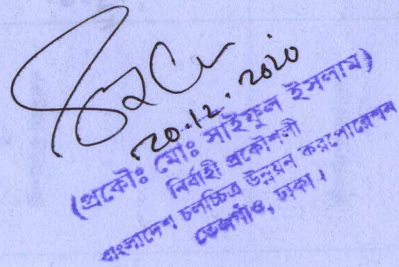 20.12.2020
(প্রকৌঃ মোঃ সাইফুল ইসলাম)
নির্বাহী প্রকৌশলী
বাংলাদেশ চলচ্চিত্র উন্নয়ন করপোরেশন
তেজগাঁও, ঢাকা।